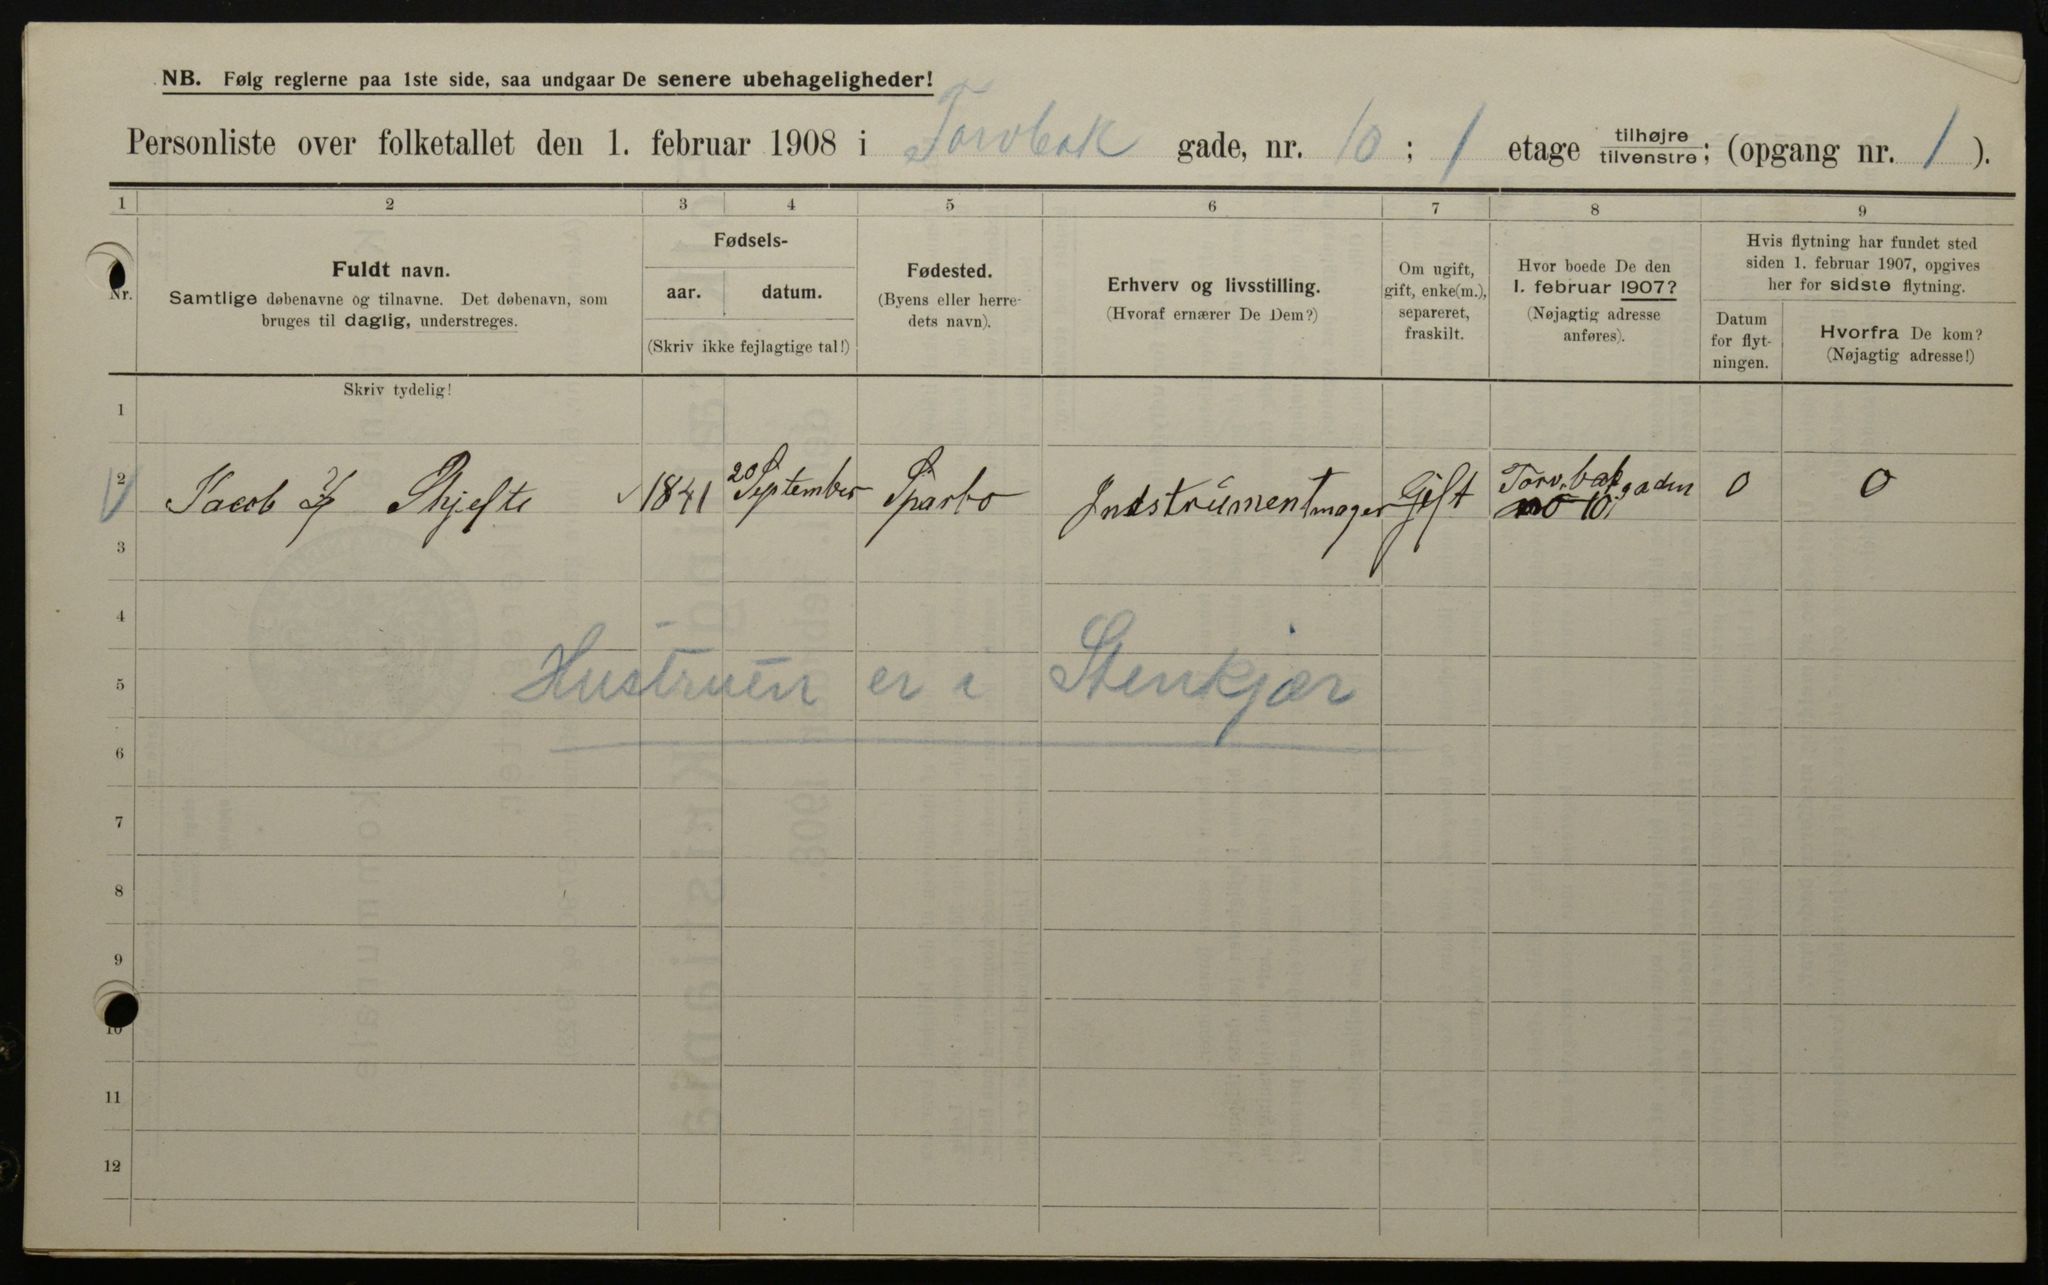 NB. Følg reglerne paa 1ste side, saa undgaar De senere ubehageligheder!
Personliste over folketallet den 1. februar 1908 i Torvbak gade, nr. 10 ; 1 etage tilhøjre tilvenstre ; (opgang nr. 1 ).
1 2 3 4 5 6 7 8 9
Nr.
Fuldt navn.
Samtlige døbenavne og tilnavne. Det døbenavn, som
bruges til daglig, understreges.
Skriv tydelig!
Fødsels-
aar. datum.
(Skriv ikke fejlagtige tal!)
Fødested.
(Byens eller herre-
dets navn).
Erhverv og livsstilling.
(Hvoraf ernærer De Dem?)
Om ugift,
gift, enke(m.),
separeret,
fraskilt.
Hvor boede De den
1. februar 1907?
(Nøjagtig adresse
anføres).
Hvis flytning har fundet sted
siden 1. februar 1907, opgives
her for sidste flytning.
Datum
for flyt-
ningen.
Hvorfra De kom?
(Nøjagtig adresse!)
1
2 Jacob Skjefte 1841 20 September Sparbo Indstrumentmager Gift Torvbakgaden no 10 0 0
3
4
5 Hustruen er i Stenkjær
6
7
8
9
10
11
12